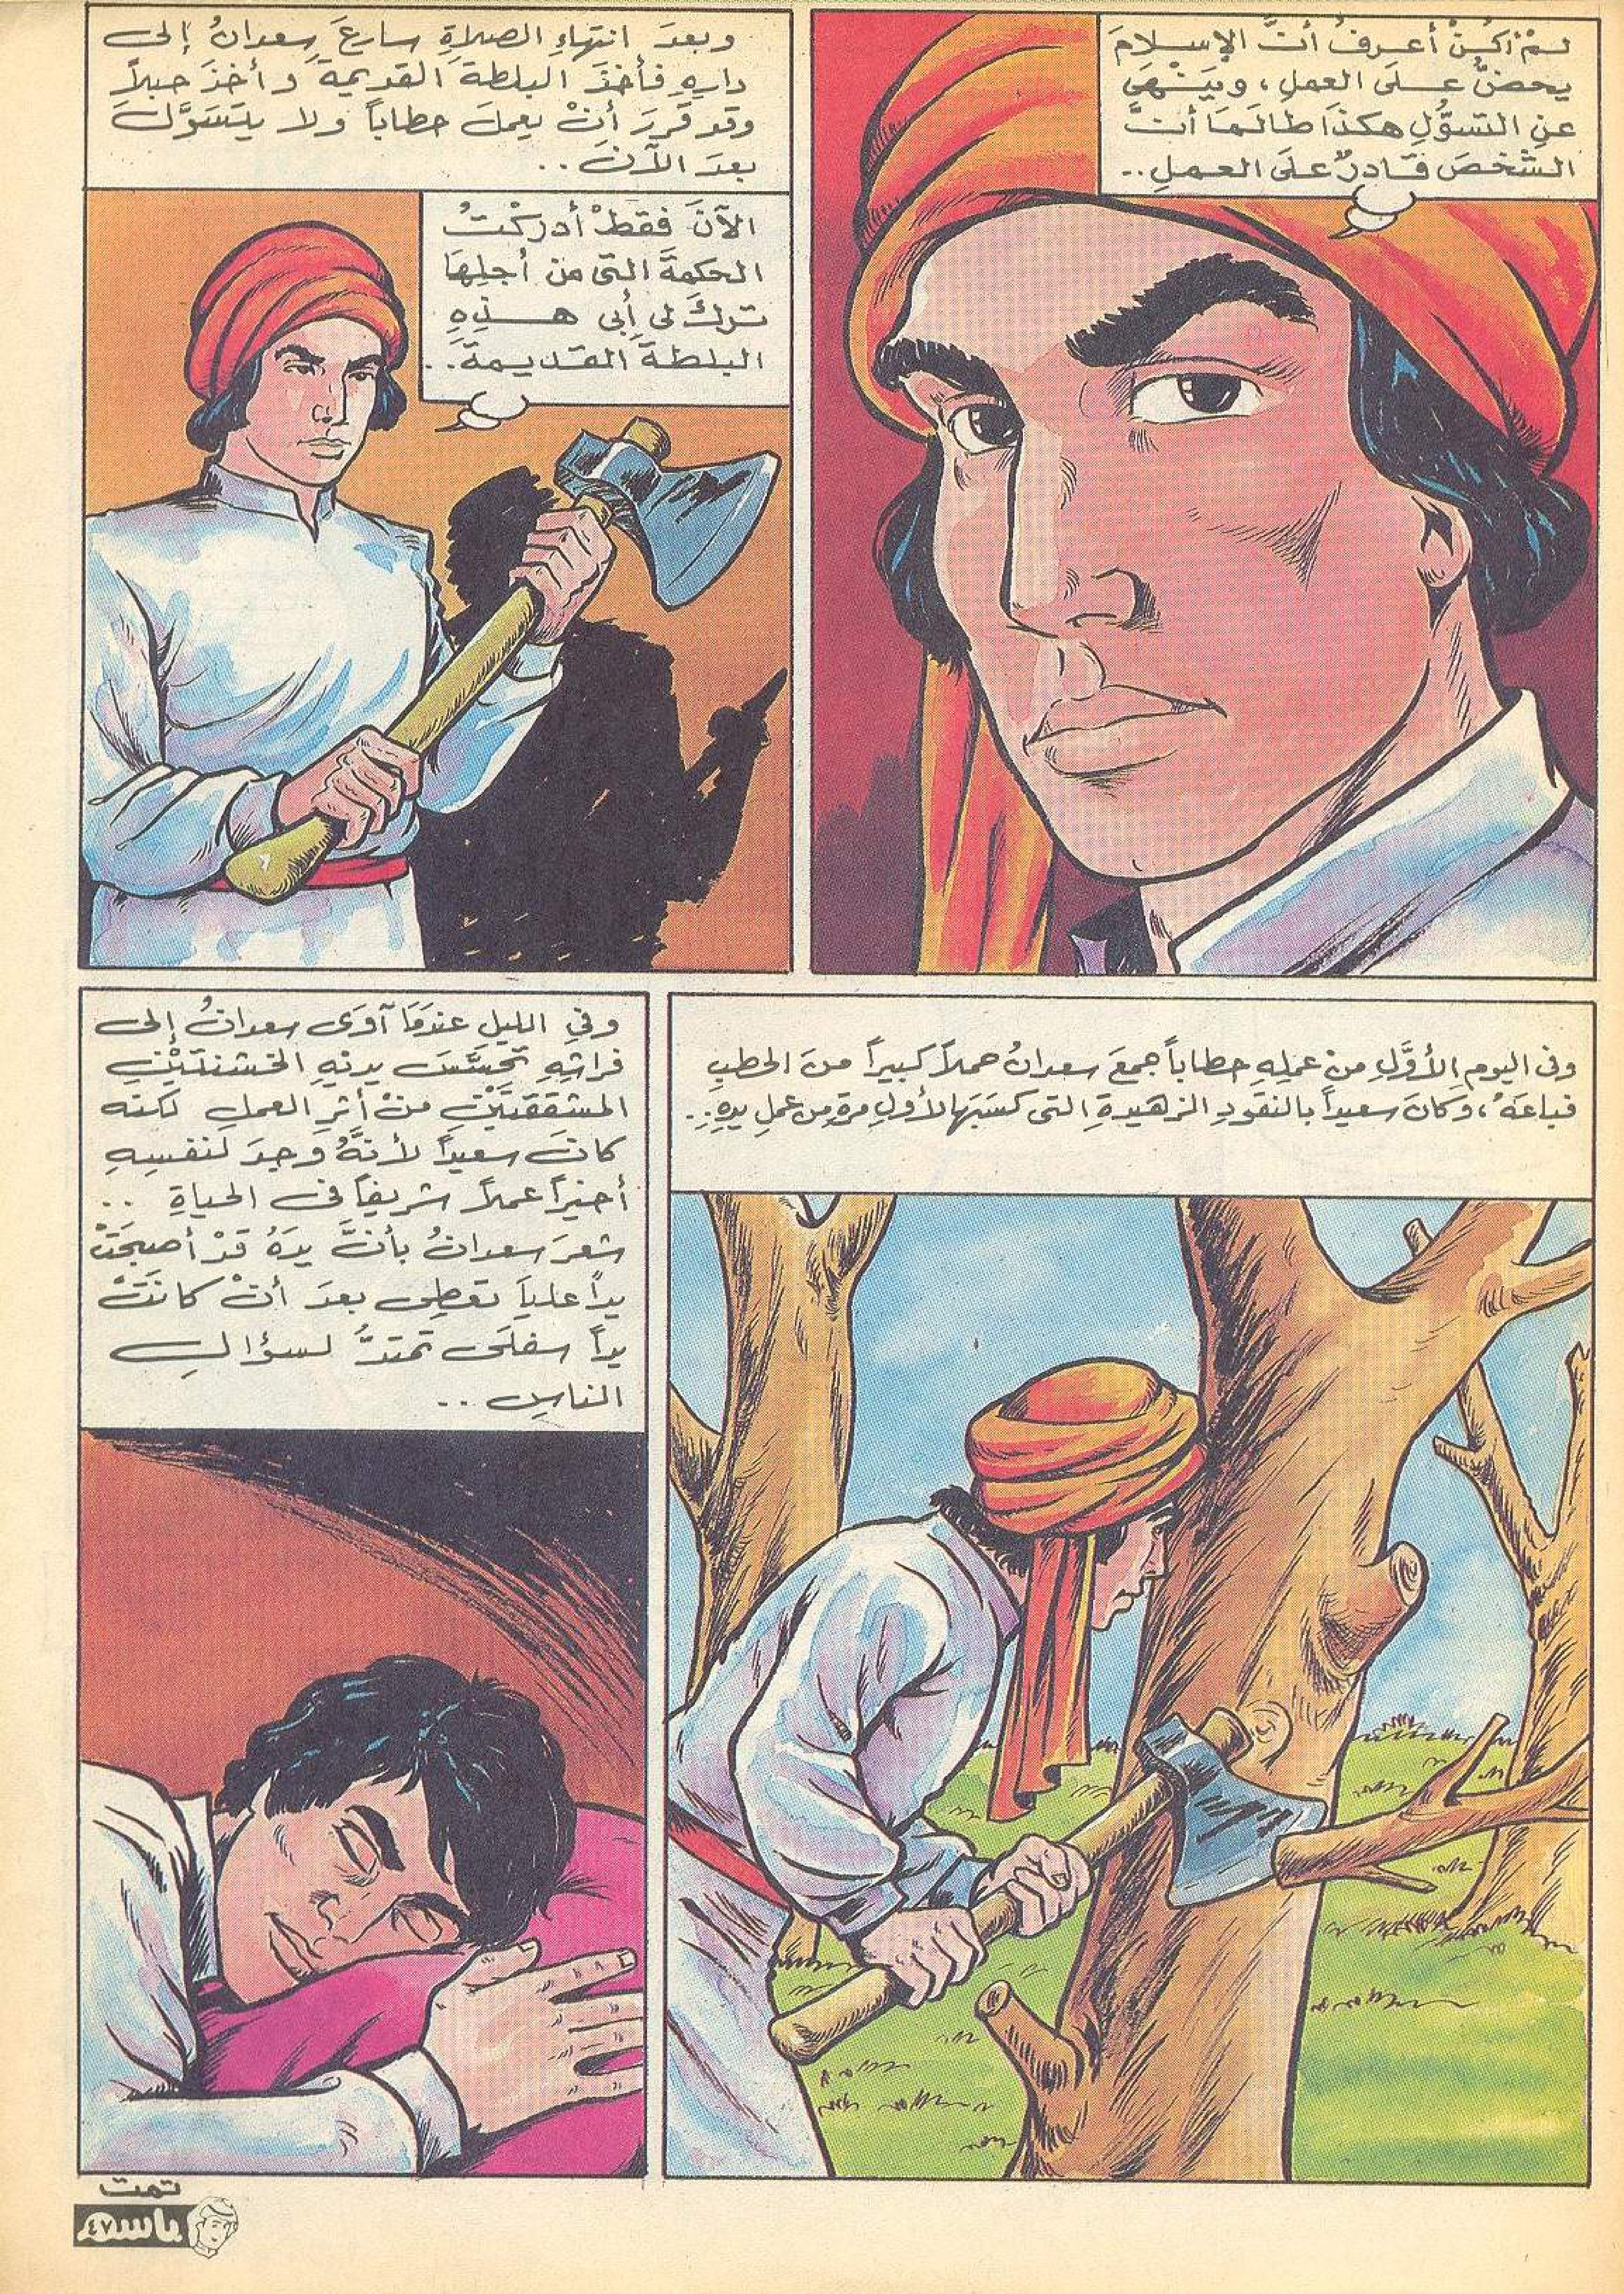 لَمْ أَكُنْ أعرفُ أنَّ الإسلامَ
يحضُّ عَلَى العملِ، ويَنْهَى
عنِ التسوُّلِ هكذَا طالَمَا أنَّ
الشخصَ قَادرٌ علَى العملِ..
وبعدَ انتهاءِ الصلاةِ سارعَ سعدانُ إلى
دارِهِ فأخذَ البلطةَ القديمةَ وأخذَ حبلاً
وقد قررَ أنْ يعملَ حطاباً ولا يتسَوَّلَ
بعدَ الآنَ..
الآنَ فقطْ أدركْتُ
الحكمةَ التى من أجلِهَا
تركَ لى أبى هذِهِ
البلطةَ القديمةَ..
وفى اليومِ الأوَّلِ منْ عملِهِ حطاباً جمعَ سعدانُ حملاً كبيراً منَ الحطبِ
فباعَهُ، وكانَ سعيداً بالنقودِ الزهيدةِ التى كسَبَهَا لأولِ مرةٍ من عملِ يدِهِ..
وفى الليلِ عندَمَا آوَى سعدانُ إلى
فراشِهِ تحسَّسَ يديْهِ الخشنتَيْنِ
المشققتَيْنِ منْ أثرِ العملِ لكنه
كانَ سعيداً لأنَّهُ وجدَ لنفسِهِ
أخيراً عملاً شريفاً فى الحياةِ ..
شعرَ سعدانُ بأنَّ يدَهُ قدْ أصبحَتْ
يداً علياَ تعطِى بعدَ أنْ كانَتْ
يداً سفلَى تمتدُّ لسؤالِ
الناسِ ..
تمت
باسم
٤٧